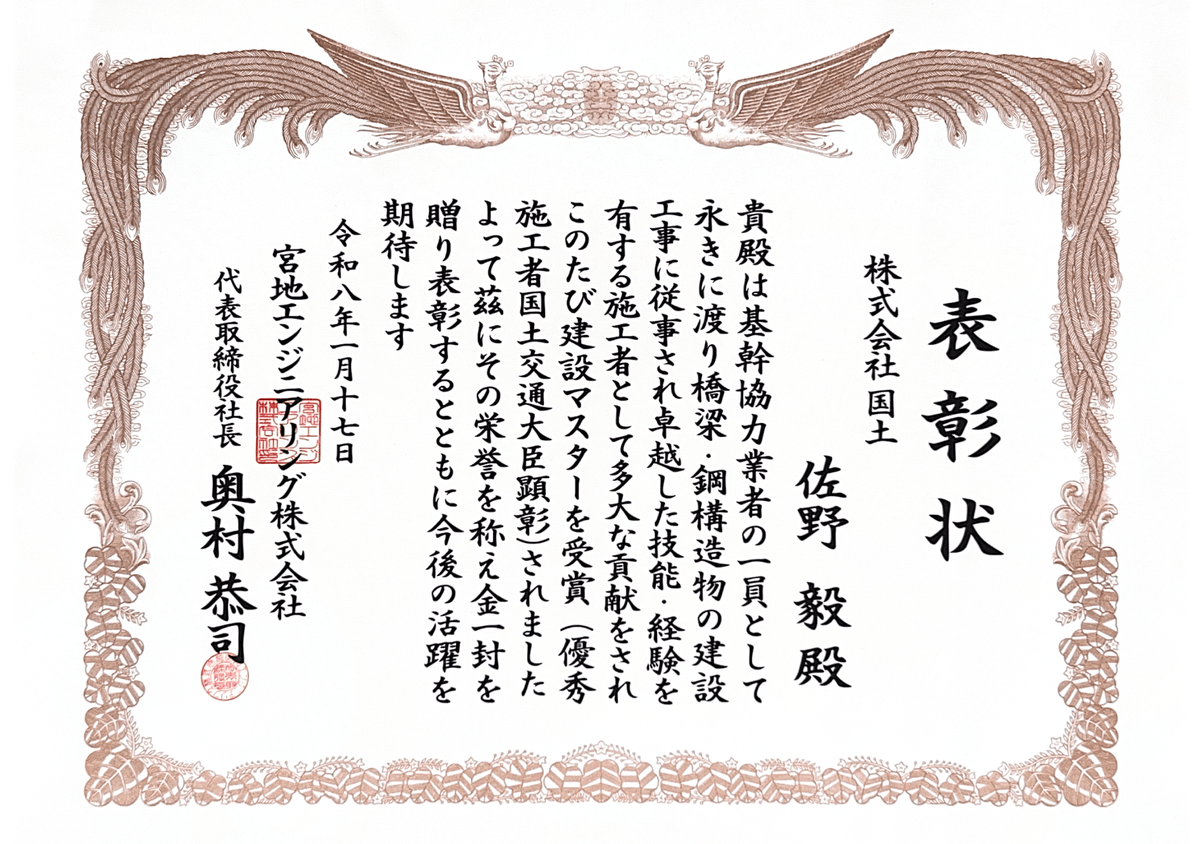 表彰状
株式会社国土
佐野 毅殿
貴殿は基幹協力業者の一員として
永きに渡り橋梁・鋼構造物の建設
工事に従事され卓越した技能・経験を
有する施工者として多大な貢献をされ
このたび建設マスターを受賞（優秀
施工者国土交通大臣顕彰）されました
よって茲にその栄誉を称え金一封を
贈り表彰するとともに今後の活躍を
期待します
令和八年一月十七日
宮地エンジニアリング株式会社
代表取締役社長 奥村恭司